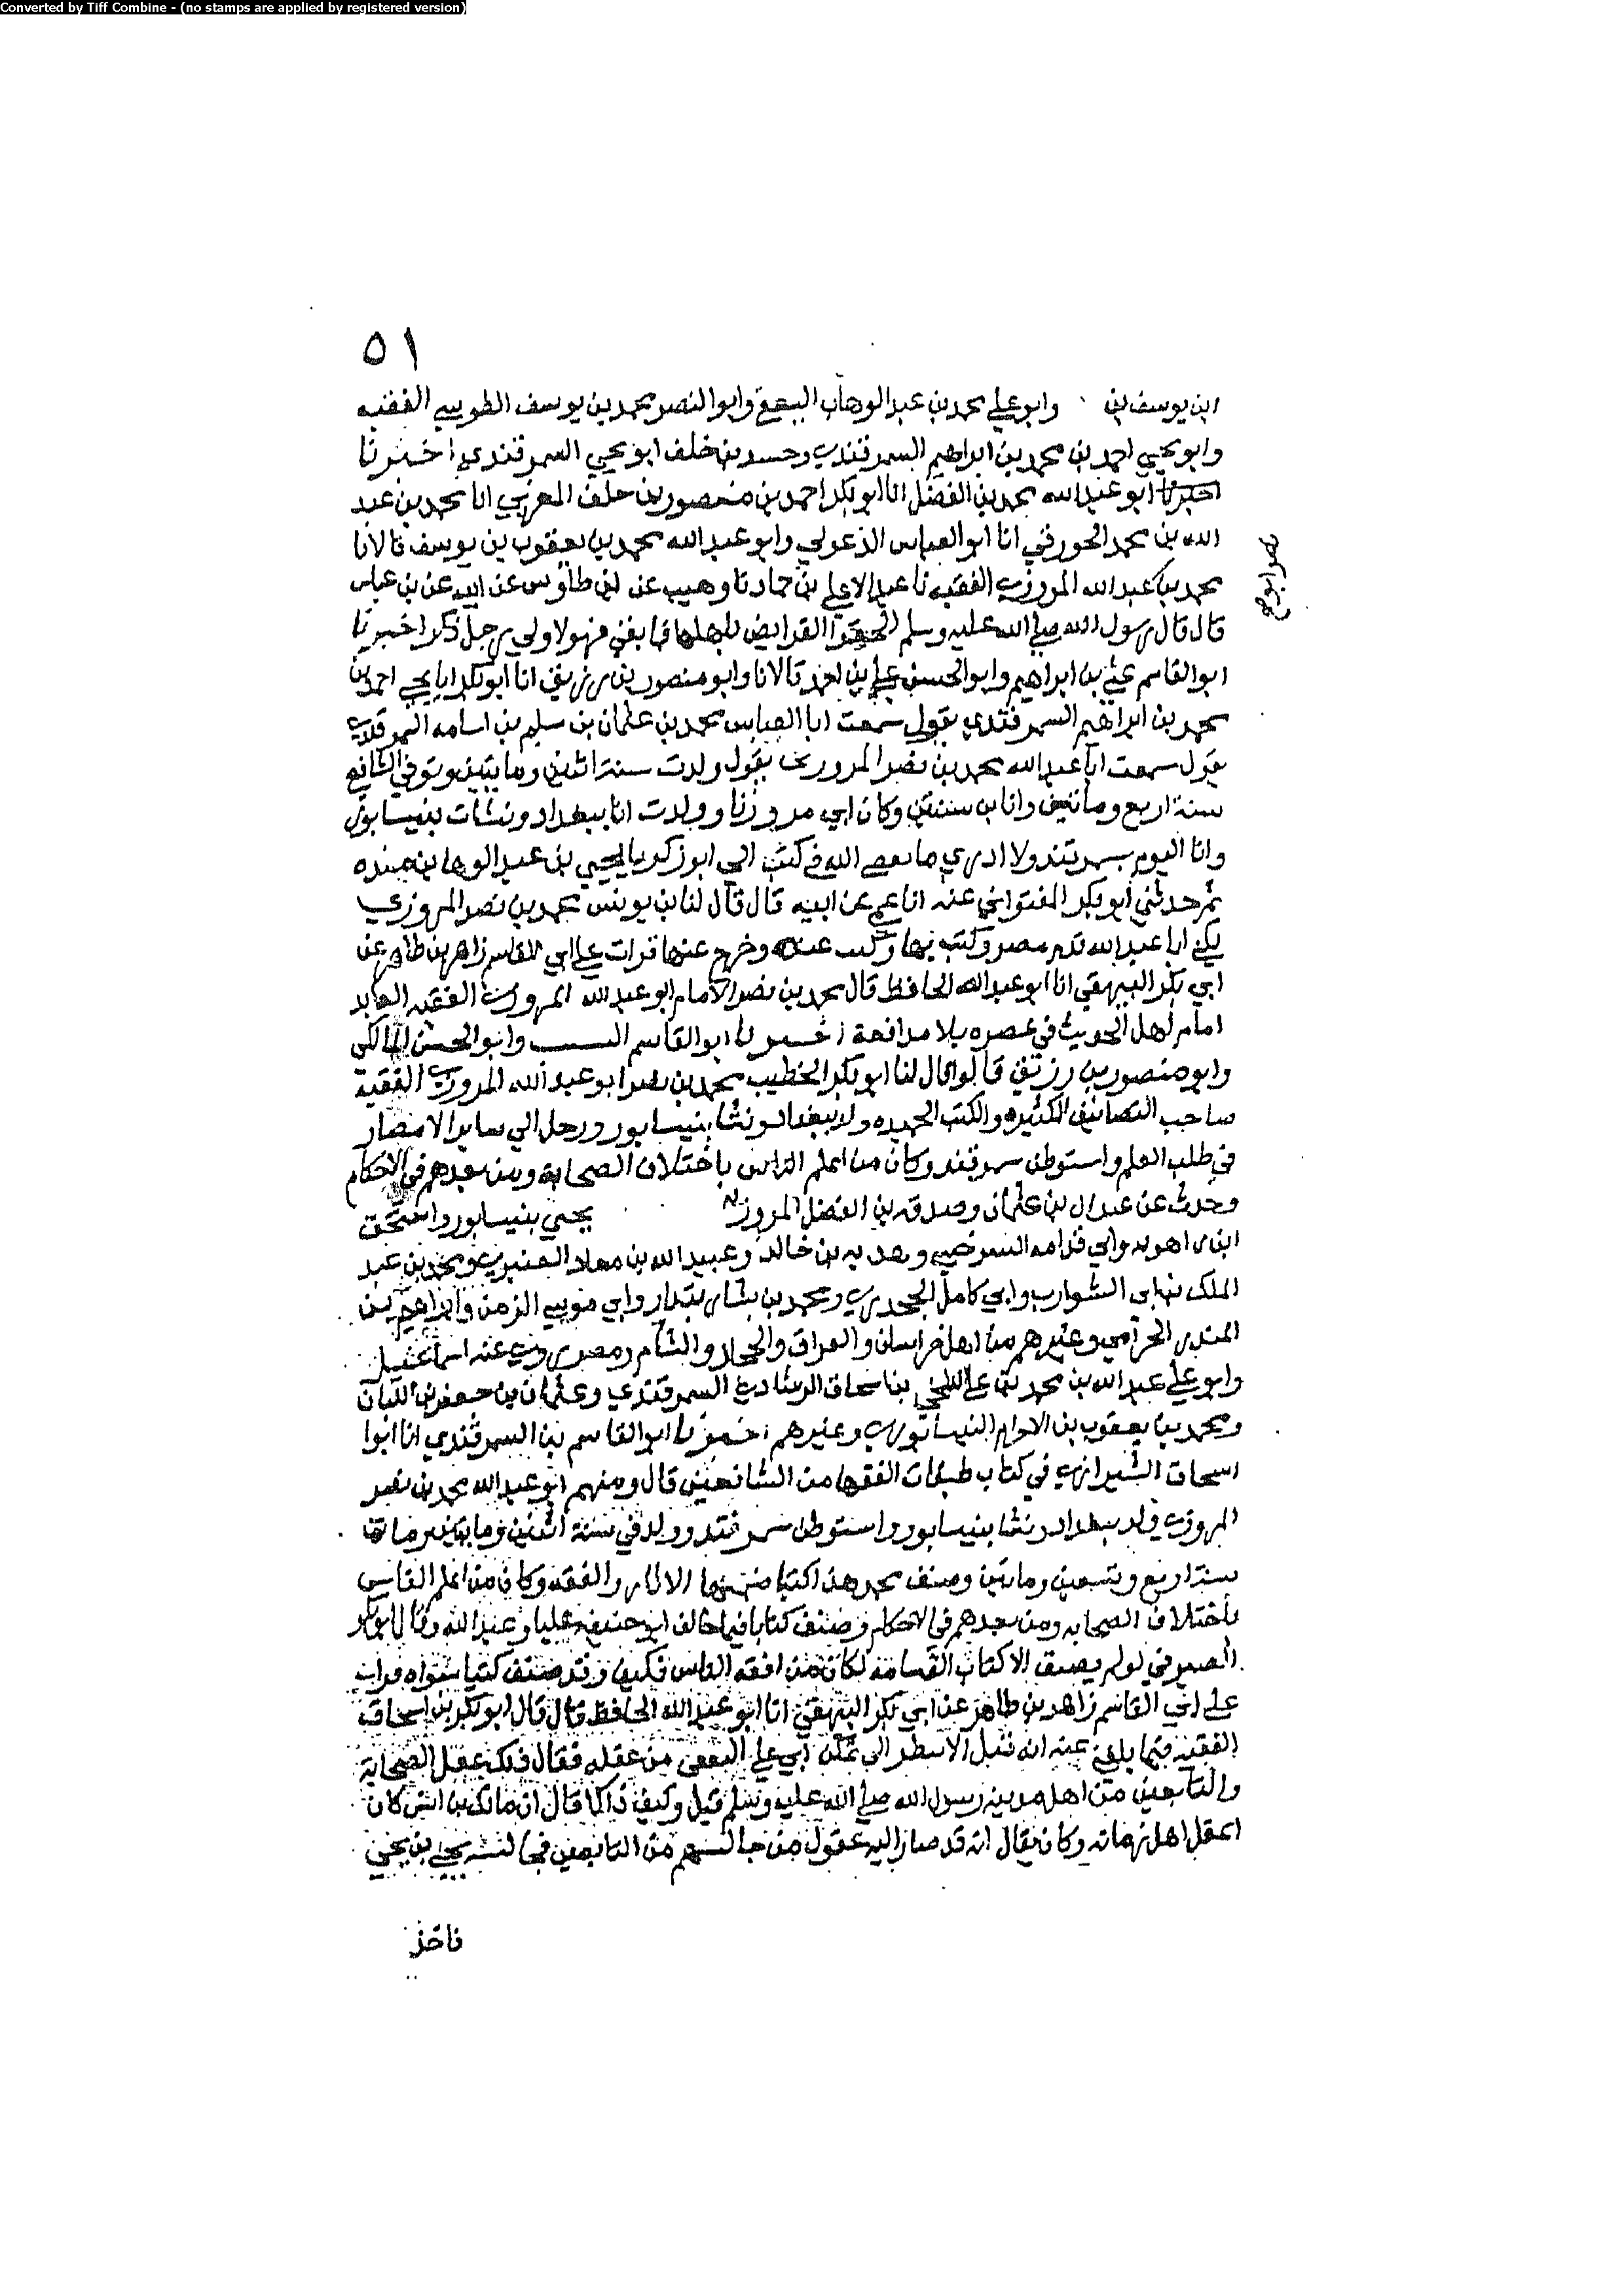 Converted by Tiff Combine - (no stamps are applied by registered version)
٥١
ابن يوسف بن وابو علي محمد بن عبد الوهاب وابو النصر محمد بن يوسف الطوسي الفقيه
وابو يحيى احمد بن محمد بن ابراهيم السمرقندي خلف ابو يحيى السمرقندي اخبرنا
ابو عبد الله محمد بن الفضل انا ابو بكر احمد بن منصور بن خلف المغربي انا محمد بن عبد
الله بن محمد الجوزقي انا ابو العباس الدغولي وابو عبد الله محمد بن يعقوب بن يوسف قالا نا
محمد بن عبد الله المروزي الفقيه نا عبد الاعلى بن حماد نا وهيب عن ابن طاوس عن ابيه عن بن عباس
صوابه
قال قال رسول الله صلى الله عليه وسلم الحقوا الفرايض باهلها فما بقي فهو لاولي رجل ذكر اخبرنا
ابو القاسم علي بن ابراهيم وابو الحسن علي بن احمد قالا نا وابو منصور بن زريق انا ابو بكر يحيى احمد بن
محمد بن ابراهيم السمرقندي يقول سمعت ابا العباس محمد بن عثمان بن سليم بن اسامه السمرقندي
يقول سمعت ابا عبد الله محمد بن نصر المروزي يقول ولدت سنة اثنين ومايتين وتوفي الشافعي
سنة اربع ومائتين وانا بن سنتين وكان ابي مروزنا وولدت انا ببغداد ونشات بنيسابور
وانا اليوم بسمرقند ولا ادري ما يقضي الله في كتب الي ابو زكريا يحيى بن عبد الوهاب بن منده
ثم حدثني ابو بكر اللفتواني عنه انا عمي عن ابيه قال قال لنا بن يونس محمد بن نصر المروزي
يكنى ابا عبد الله قدم مصر وكتب بها وكتب عنه وخرج عنها قرات على ابي القاسم زاهر بن طاهر عن
ابي بكر البيهقي انا ابو عبد الله الحافظ قال محمد بن نصر الامام ابو عبد الله المروزي الفقيه العابد
امام اهل الحديث في عصره بلا مدافعة اخبرنا ابو القاسم وابو الحسن المالكي
وابو منصور بن زريق قالوا قال لنا ابو بكر الخطيب محمد بن نصر ابو عبد الله المروزي الفقيه
صاحب التصانيف الكثيره والكتب ولد ببغداد ونشا بنيسابور ورحل الى ساير الامصار
في طلب العلم واستوطن سمرقند وكان من اعلم الناس باختلاف الصحابة ومن بعدهم في الاحكام
وحدث عن عبدان بن عثمان وصدقه بن الفضل المروزي يحيى بنيسابور واسحق
ابن راهويه وابي قدامه السرخسي وهدبه بن خالد وعبيد الله بن معاذ العنبري ومحمد بن عبد
الملك بن ابي الشوارب وابي كامل الجحدري ومحمد بن بشار بندار وابي موسى الزمن وابراهيم بن
المنذر الحزامي وغيرهم من اهل خراسان والعراق والحجاز والشام ومصر روى عنه اسماعيل
وابو علي عبد الله بن محمد بن علي البلخي بن اسحاق الرشادي السمرقندي وعثمان بن جعفر بن اللبان
ومحمد بن يعقوب بن الاخرم النيسابوري وغيرهم اخبرنا ابو القاسم بن السمرقندي انا ابوا
اسحاق الشيرازي في كتاب طبقات الفقها من الشافعيين قال ومنهم ابو عبد الله محمد بن نصر
المروزي ولد ببغداد ونشا بنيسابور واستوطن سمرقند وولد في سنة اثنين ومايتين ومات
سنة اربع وتسعين ومائتين وصنف محمد هذا كتبا ضمنها الاثار والفقه وكان من اعلم الناس
باختلاف الصحابه ومن بعدهم في الاحكام وصنف كتابا فيما خالف ابو حنيفه عليا وعبد الله وقال ابو بكر
الصيرفي لو لم يصنف الا كتاب القسامه لكان من افقه الناس فكيف وقد صنف كتبا سواه قرات
على ابي القاسم زاهر بن طاهر عن ابي بكر البيهقي انا ابو عبد الله الحافظ قال قال ابو بكر بن اسحاق
الفقيه فيما بلغني عنه انه قيل الا تنظر الى تمكن ابي علي الثقفي من عقله فقال ذلك عقل الصحابة
والتابعين من اهل مدينه رسول الله صلى الله عليه وسلم قيل وكيف ذاك قال ان مالك بن انس كان
اعقل اهل زمانه وكان يقال انه قد صار اليه عقول من جالسهم من التابعين فجالسه يحيى بن يحيى
فاخذ